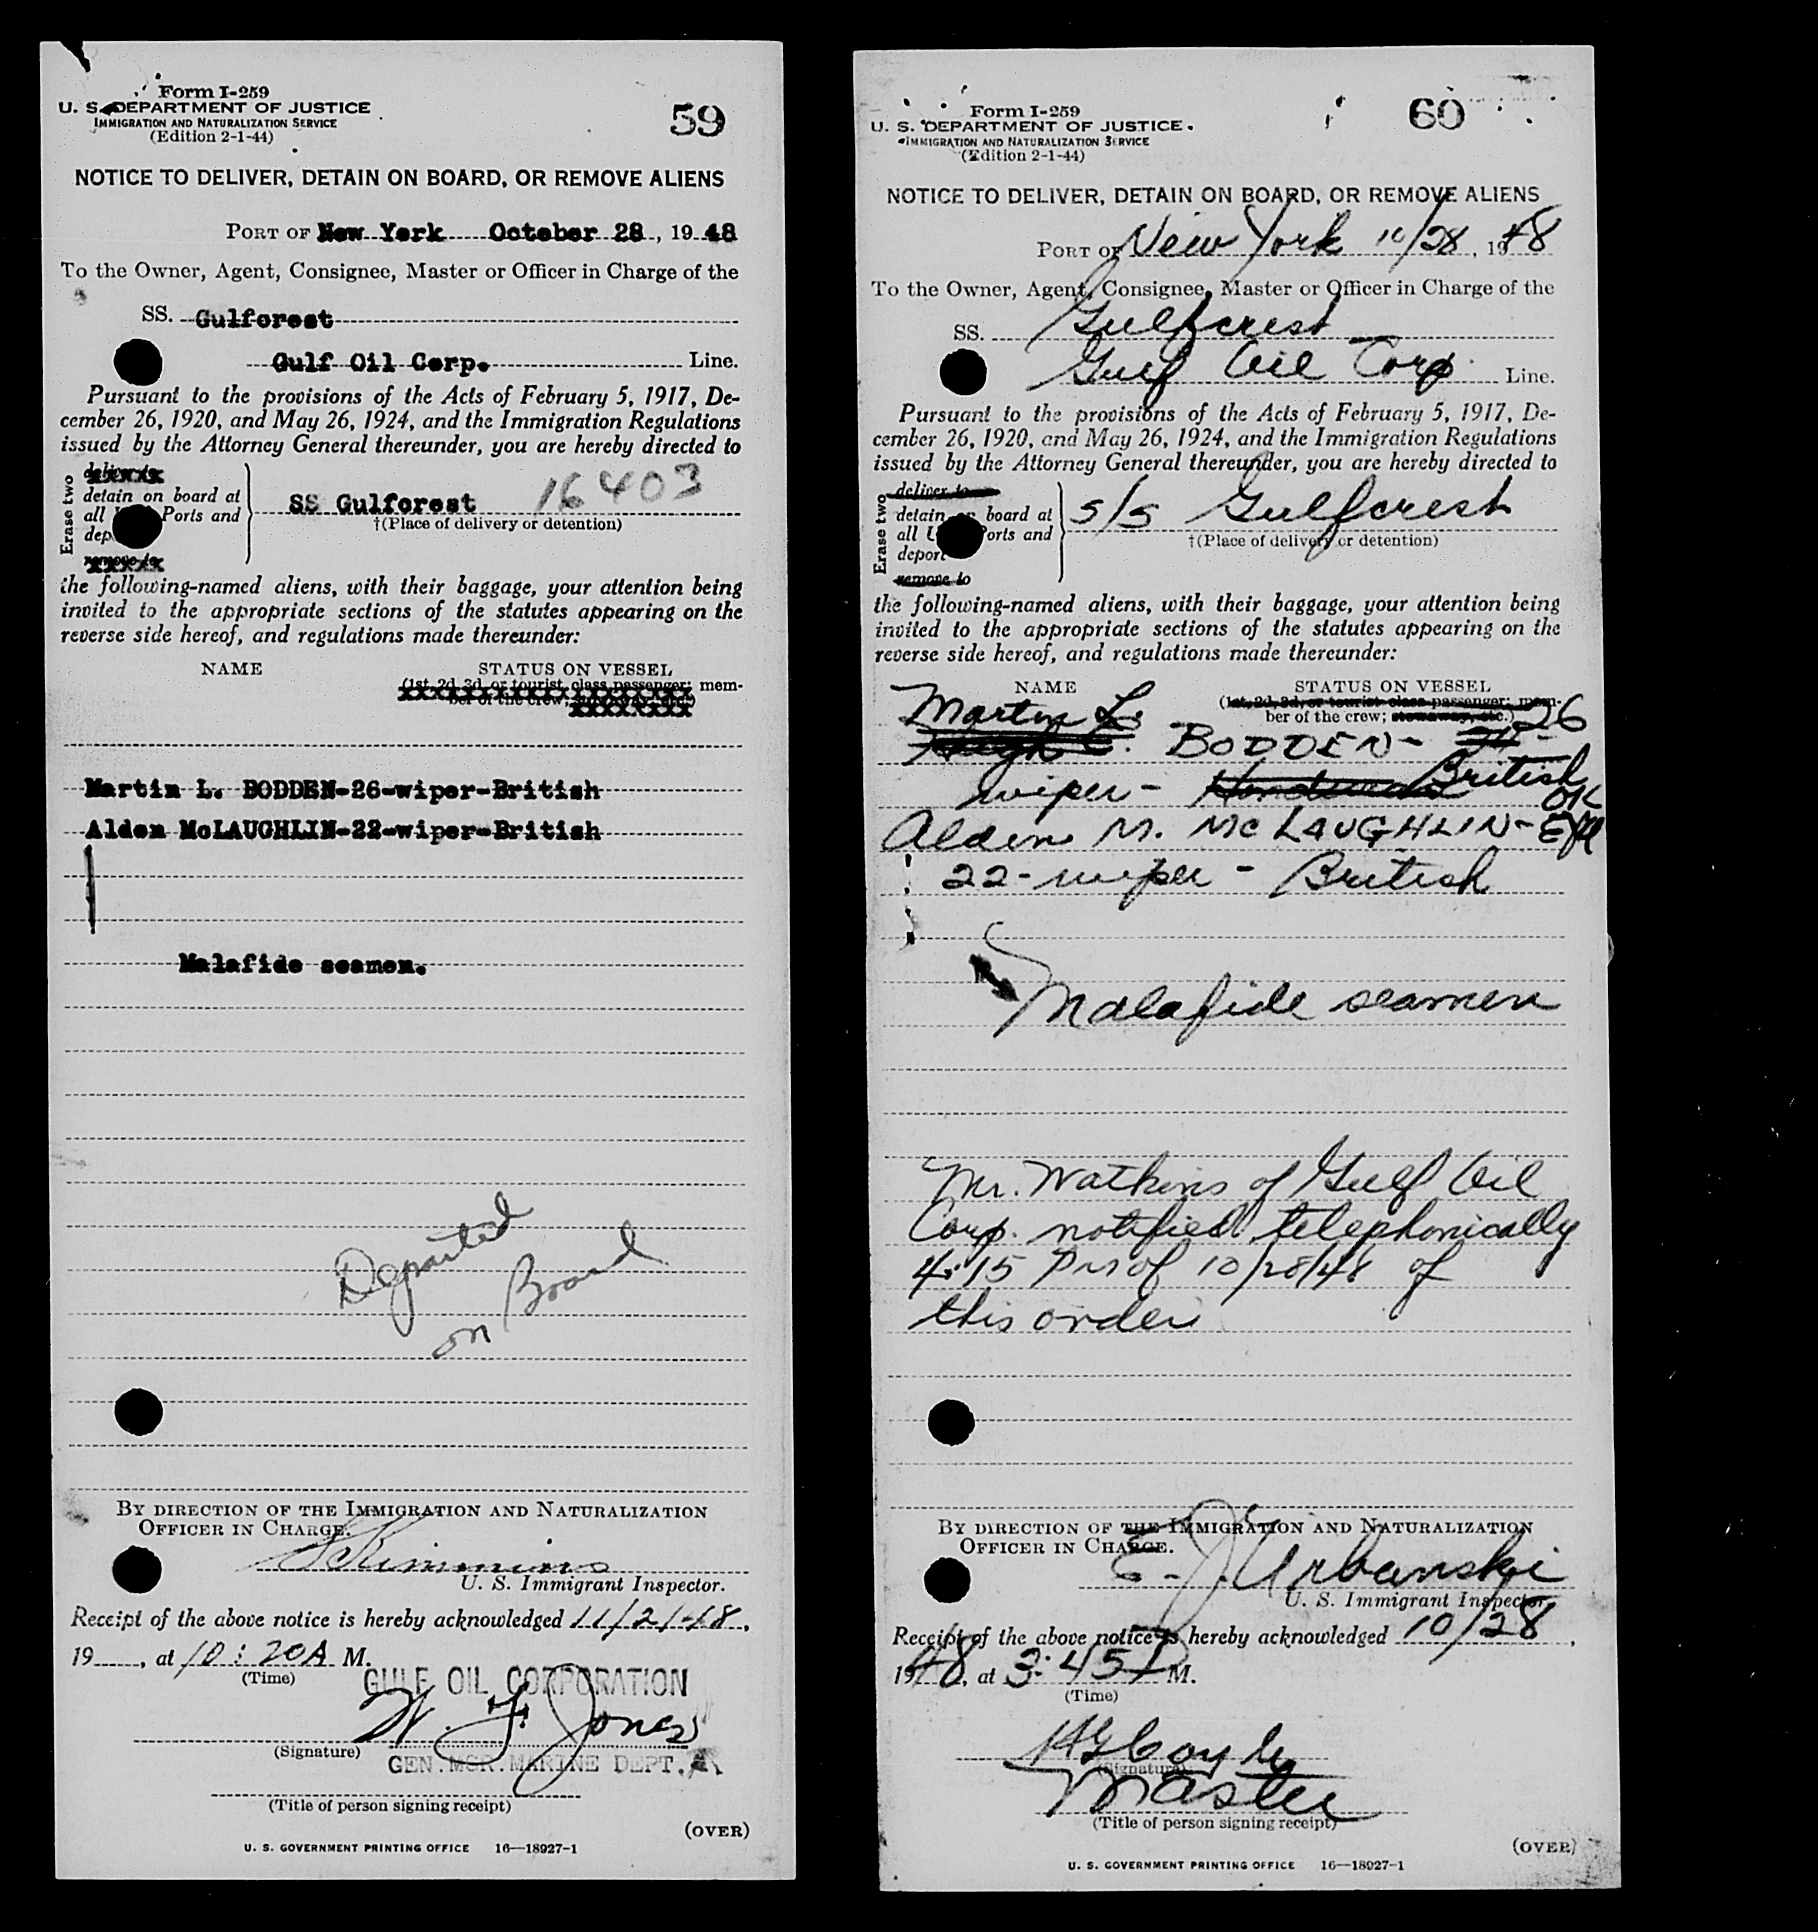 Form I-259
U. S. DEPARTMENT OF JUSTICE
IMMIGRATION AND NATURALIZATION SERVICE
(Edition 2-1-44)
59
NOTICE TO DELIVER, DETAIN ON BOARD, OR REMOVE ALIENS
PORT OF New York October 28, 1948
To the Owner, Agent, Consignee, Master or Officer in Charge of the
SS. Gulfcrest
Gulf Oil Corp. Line.
Pursuant to the provisions of the Acts of February 5, 1917, De-
cember 26, 1920, and May 26, 1924, and the Immigration Regulations
issued by the Attorney General thereunder, you are hereby directed to
Erase two
deliver to
detain on board at
all Ports and
dep
remove to
SS Gulfcrest 16403
†(Place of delivery or detention)
the following-named aliens, with their baggage, your attention being
invited to the appropriate sections of the statutes appearing on the
reverse side hereof, and regulations made thereunder:
NAME STATUS ON VESSEL
(1st, 2d, 3d, or tourist class passenger; mem-
ber of the crew;
Martin L. BODDEN-26-wiper-British
Alden McLAUGHLIN-22-wiper-British
Malafide seamen.
Departed
on Board
BY DIRECTION OF THE IMMIGRATION AND NATURALIZATION
OFFICER IN CHARGE.
U. S. Immigrant Inspector.
Receipt of the above notice is hereby acknowledged 11/2/48,
19 , at 10:20A M.
(Time)
GULF OIL CORPORATION
W. F. Jones
(Signature)
GEN. MGR. MARINE DEPT.
(Title of person signing receipt)
(OVER)
U. S. GOVERNMENT PRINTING OFFICE 16—18927-1
Form I-259
U. S. DEPARTMENT OF JUSTICE
IMMIGRATION AND NATURALIZATION SERVICE
(Edition 2-1-44)
60
NOTICE TO DELIVER, DETAIN ON BOARD, OR REMOVE ALIENS
PORT OF New York 10/28, 1948
To the Owner, Agent, Consignee, Master or Officer in Charge of the
SS. Gulfcrest
Gulf Oil Corp. Line.
Pursuant to the provisions of the Acts of February 5, 1917, De-
cember 26, 1920, and May 26, 1924, and the Immigration Regulations
issued by the Attorney General thereunder, you are hereby directed to
Erase two
deliver to
detain on board at
all Ports and
deport
remove to
S/S Gulfcrest
†(Place of delivery or detention)
the following-named aliens, with their baggage, your attention being
invited to the appropriate sections of the statutes appearing on the
reverse side hereof, and regulations made thereunder:
NAME STATUS ON VESSEL
(1st, 2d, 3d, or tourist class passenger; mem-
ber of the crew; stowaway, etc.)
Martin L. 26
Hugh BODDEN-
wiper- British
OK
Alden M. McLAUGHLIN-
22-wiper-British
Malafide seamen
Mr. Watkins of Gulf Oil
Corp. notified telephonically
4:15 PM of 10/28/48 of
this order
BY DIRECTION OF THE IMMIGRATION AND NATURALIZATION
OFFICER IN CHARGE.
E. J. Urbanski
U. S. Immigrant Inspector.
Receipt of the above notice is hereby acknowledged 10/28,
1948, at 3:45 P M.
(Time)
(Signature)
Master
(Title of person signing receipt)
(OVER)
U. S. GOVERNMENT PRINTING OFFICE 16—18927-1